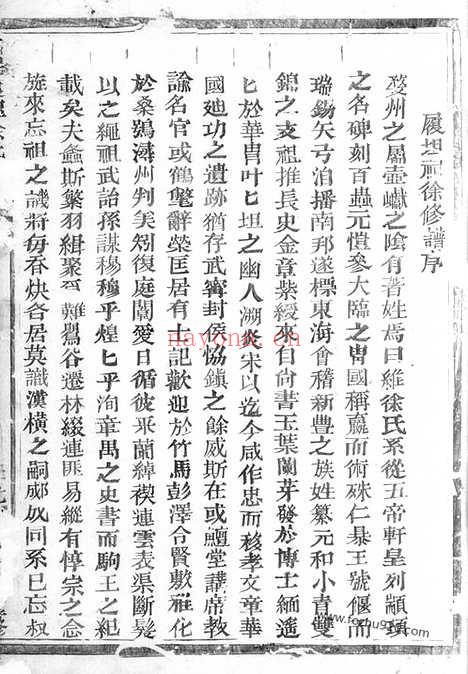 履坦祁徐修譜序
婺州之屬壼巘之陰有著姓焉曰維徐氏系從五帝軒皇列顓頊
之名碑刻百蟲元愷參大臨之冑國稱嬴而術殊仁暴王號偃而
瑞錫矢弓洎播南邦遂標東海會稽新豊之族姓纂元和小青雙
錦之支祖推長史金章紫綬來自尙書玉葉蘭芽發於博士緬遙
匕於華冑叶匕坦之幽人溯炎宋以迄今咸作忠而移孝文章華
國廸功之遺跡猶存武甯封侯恊鎮之餘威斯在或鱣堂講席教
諭名官或鶴氅辭榮匡居有士記歡迎於竹馬彭澤合賢敷雅化
於桑鴉潯州判美矧復庭闈愛日循彼采蘭綽楔連雲表渠斷髮
以之繩祖武詒孫謀穆穆乎煌匕乎洵華禺之史書而駒王之紀
載矣夫螽斯蟄羽緝聚 難鸎谷遷林綴連匪易縱有惇宗之念
旋來忘祖之譏將毋香炔各居莫識漢橫之嗣郕 同系已忘叔
nayona.cn
www.fozhu920.com